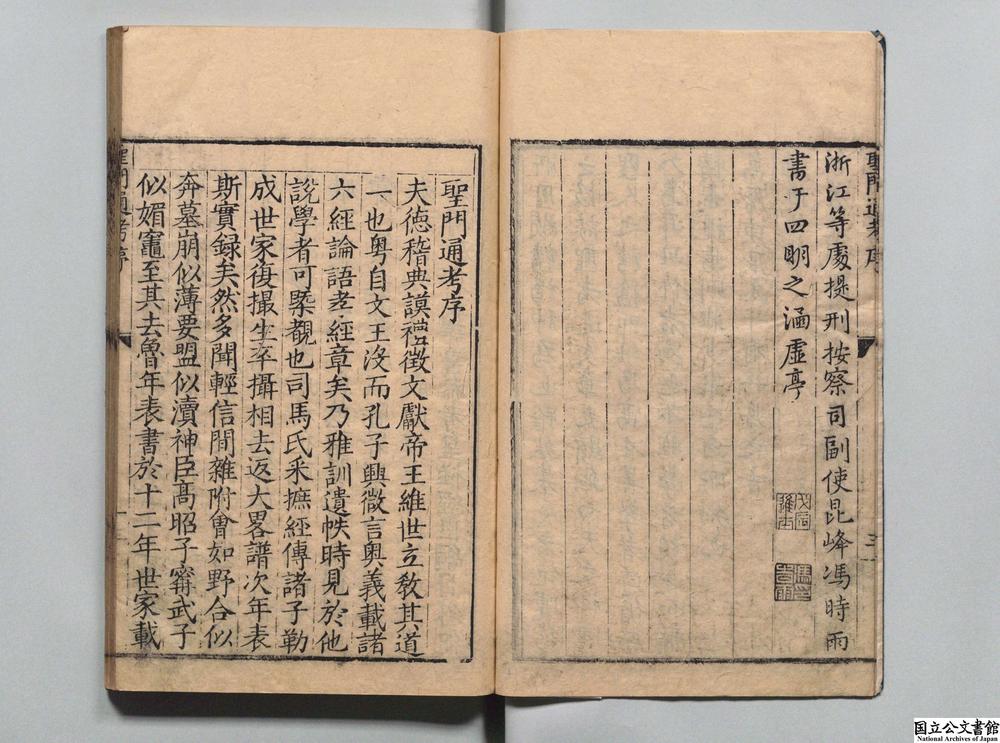 聖門通考序 三
浙江等處提刑按察司副使昆峰馮時雨
書于四明之涵虛亭
聖門通考序
夫德稽典謨禮徵文獻帝王維世立教其道
一也粤自文王沒而孔子興微言奧義載諸
六經論語孝經章矣乃雅訓遺帙時見於他
說學者可槩覩也司馬氏采摭經傳諸子勒
成世家復撮生卒攝相去返大畧譜次年表
斯實録矣然多聞輕信間雜附會如野合似
奔墓崩似薄要盟似瀆神臣髙昭子甯武子
似媚竈至其去魯年表書於十二年世家載
聖門通考序
国立公文書館
National Archives of Japan